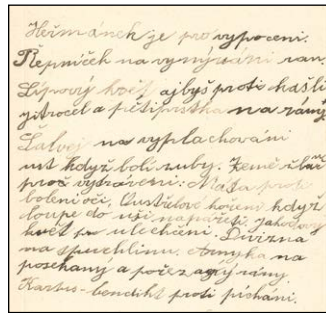 Heřmánek je pro vypocení.
Řepníček na vymývání ran.
Lipový květ, ajbyš proti kašli
jitrocel a pětiprstka na rány
Šalvěj na vyplachování
úst když bolí zuby. Země
proč vyrážení. Máta proti
bolení očí, kořeni když
loupe do uší napářeti. Jahodový
květ po ulehčení. Divizna
na spuchlinu. Arnyka na
posekaný a pořezaný rány
Kartus-bendikt proti píchání.